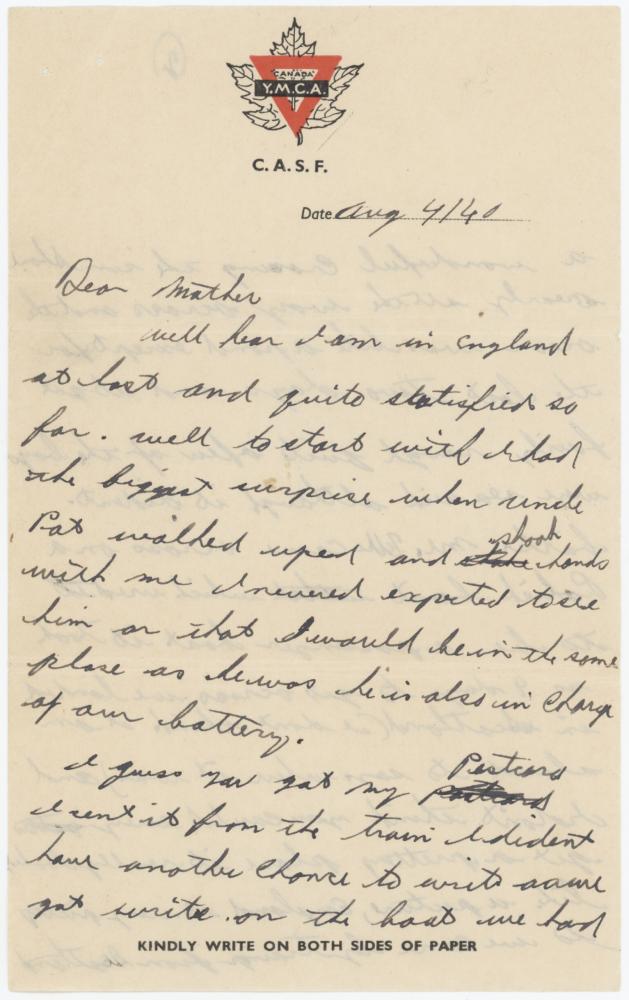 CANADA
Y.M.C.A.
C.A.S.F.
Date Aug 4/40
Dear Mather
well hear I am in England
at last and quite statisfied so
far. well to start with I had
the biggest surprise when uncle
Pat walked uped and shook hands
with me I nevered expected to see
him or that I would be in the same
plase as he was he is also in charge
of our battery.
I guess you got my Postcard
I sent it from the train I dident
have another chance to write as we
got write on the boat we had
KINDLY WRITE ON BOTH SIDES OF PAPER